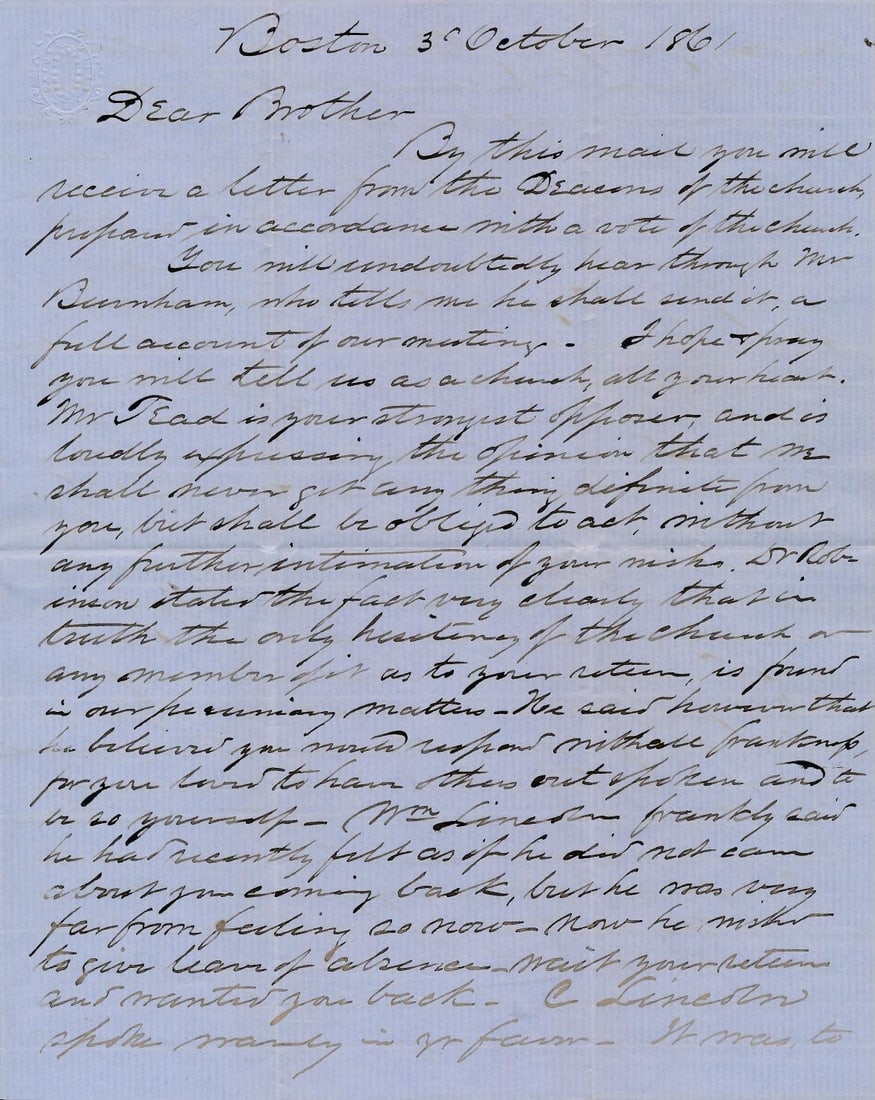 Boston 3d October 1861
Dear Brother
By this mail you will
receive a letter from the Deacons of the church,
prepared in accordance with a vote of the church.
You will undoubtedly hear through Mr
Burnham, who tells me he shall send it, a
full account of our meeting - I hope & pray
you will tell us as a church, all your heart.
Mr Tead is your strongest opposer, and is
loudly expressing the opinion that we
shall never get any thing definite from
you, but shall be obliged to act, without
any further intimation of your wish. Dr Rob-
inson stated the fact very clearly that in
truth the only hesitency of the church or
any member of it as to your return, is found
in our pecuniary matters - He said however that
he believed you would respond with all frankness,
for you loved to have others out spoken and to
be so yourself - Wm Lincoln frankly said
he had recently felt as if he did not care
about you coming back, but he was very
far from feeling so now - now he wished
to give leave of absence - wait your return
and wanted you back - C Lincoln
spoke warmly in yr favor - It was, to